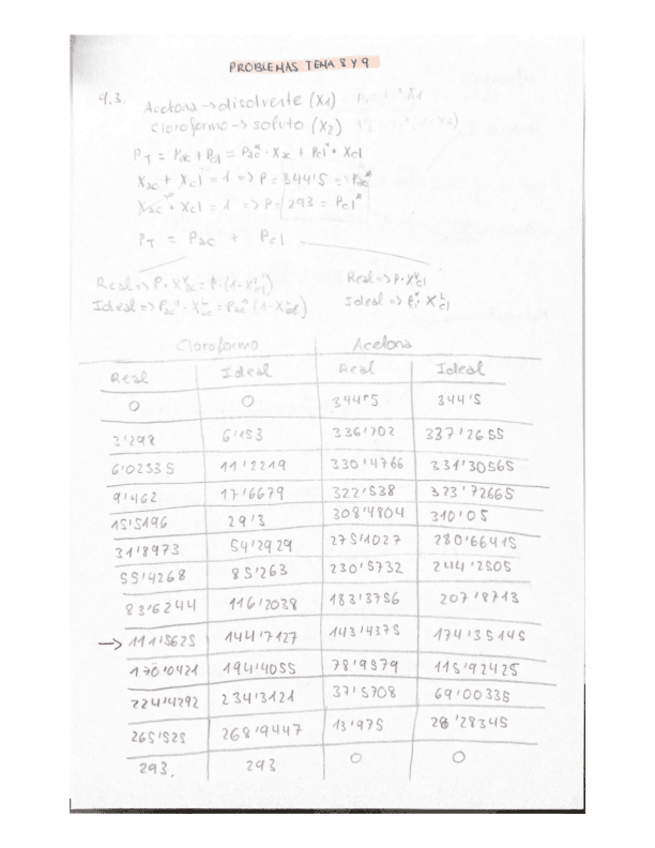 PROBLEMAS TEMA 8 Y 9
9.3. Acetona → disolvente (X1)
Cloroformo → soluto (X2)
PT = Pac + Pcl = Pac* · Xac + Pcl* · Xcl
Xac + Xcl = 1 => P = 344'5 = Pac*
Xac + Xcl = 1 => P = 293 = Pcl*
PT = Pac + Pcl
Real => P · XVac = P · (1 - XVcl) Real => P · XVcl
Ideal => Pac* · XLac = Pac* (1 - XLcl) Ideal => XLcl
Cloroformo Acetona
Real Ideal Real Ideal
0 0 344'5 344'5
3'298 6'153 336'702 337'2655
6'02535 11'2219 330'4766 331'30565
9'462 17'6679 322'538 323'72665
15'5196 29'3 308'4804 310'05
31'8973 54'2929 275'1027 280'66415
55'4268 85'263 230'5732 244'2505
83'6244 116'2038 183'3756 207'8713
→ 111'5625 144'7127 143'4375 174'35145
170'0421 194'4055 78'9579 115'92425
224'4292 234'3121 37'5708 69'00335
265'525 268'9447 13'975 28'28345
293. 293 0 0